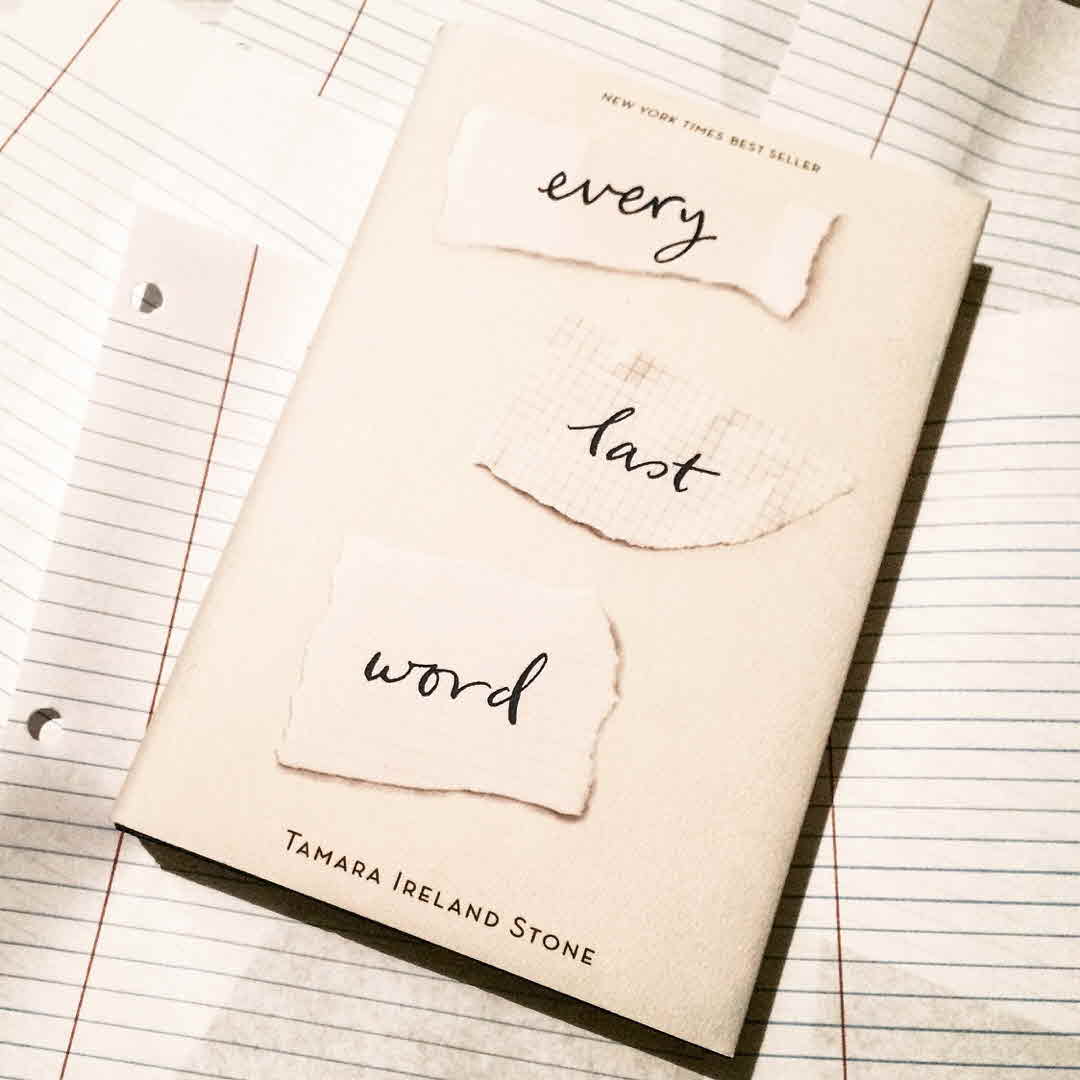 NEW YORK TIMES BEST SELLER
every
last
word
TAMARA IRELAND STONE